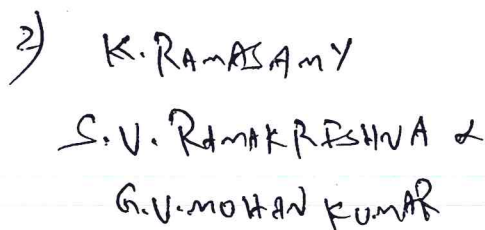 2) K. RAMASAMY
S. V. RAMAKRISHNA &
G. V. MOHAN KUMAR